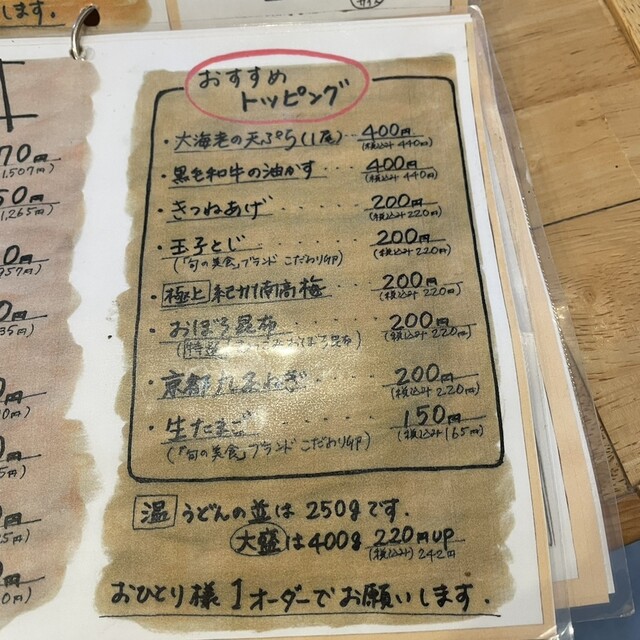 します.
サイズ
おすすめ
トッピング
・大海老の天ぷら(1尾)‥400円
(税込み440円)
・黒毛和牛の油かす‥400円
(税込み440円)
・きつねあげ‥‥200円
(税込み220円)
・玉子とじ‥‥200円
(「旬の美食」ブランド こだわり卵) (税込み220円)
・極上紀州南高梅‥200円
(税込み220円)
・おぼろ昆布‥‥200円
(特選 おぼろ昆布) (税込み220円)
・京都九条ねぎ‥‥200円
(税込み220円)
・生たまご‥‥150円
(「旬の美食」ブランド こだわり卵) (税込み165円)
温 うどんの並は250gです.
大盛は400g 220円UP
(税込み)242円
おひとり様1オーダーでお願いします.
70円
1,507円)
50円
1,265円)
0円
957円)
0円
35円)
円
0円)
円
0円)
円
0円)
円
0円)